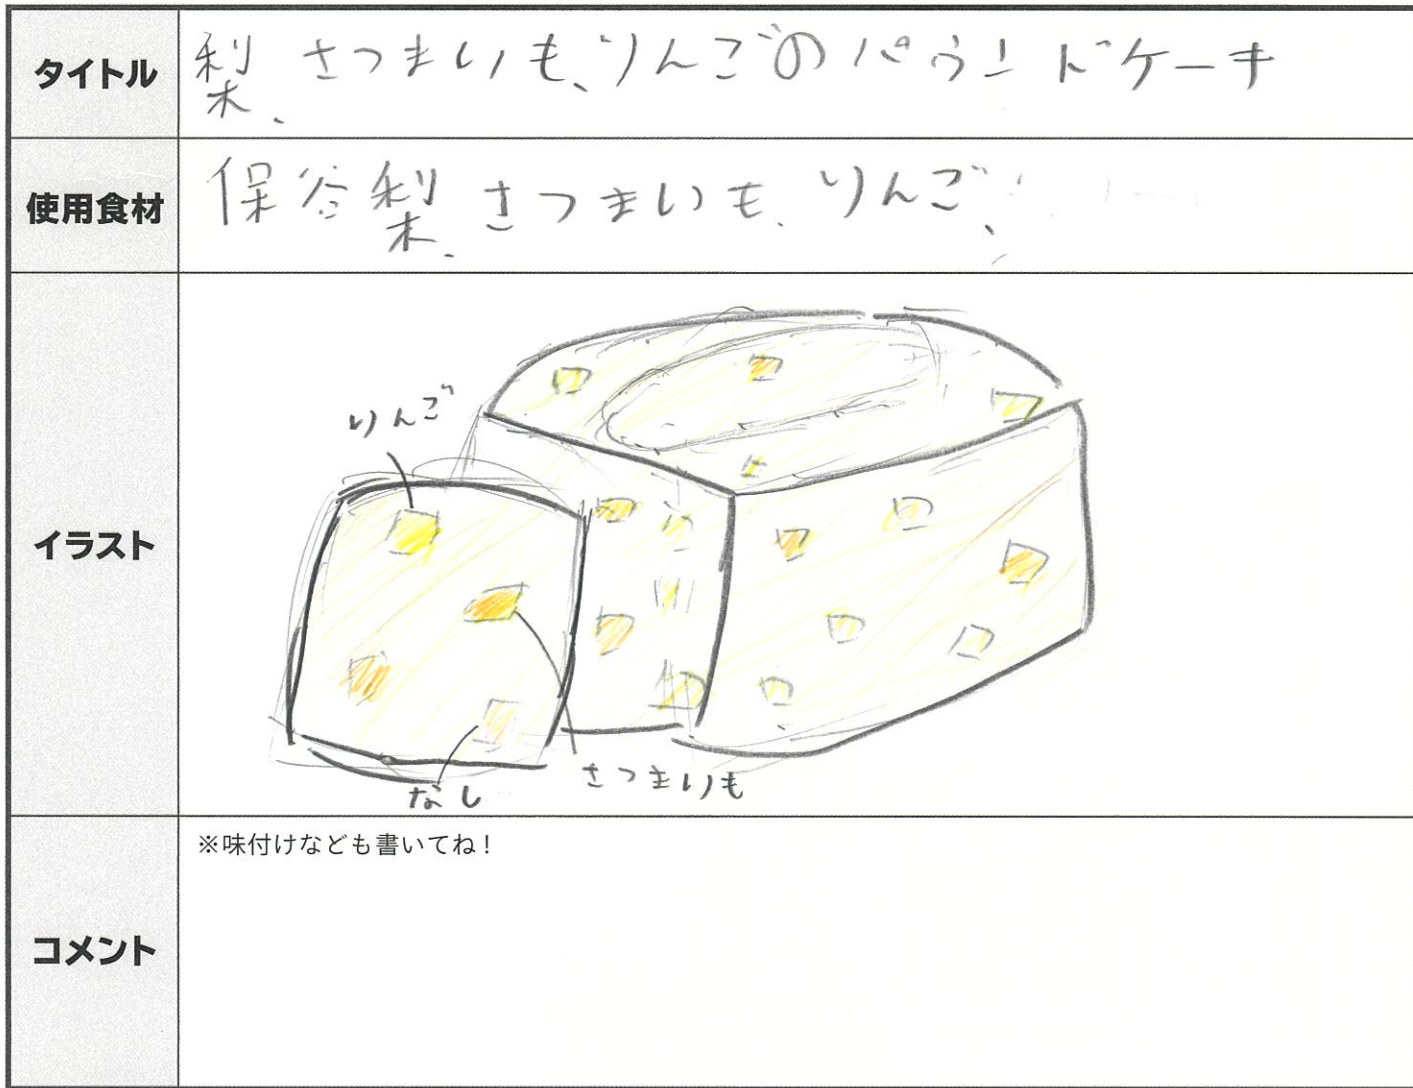 タイトル
梨、さつまいも、りんごのパウンドケーキ
使用食材
保谷梨、さつまいも、りんご、
イラスト
りんご
さつまいも
なし
コメント
※味付けなども書いてね！